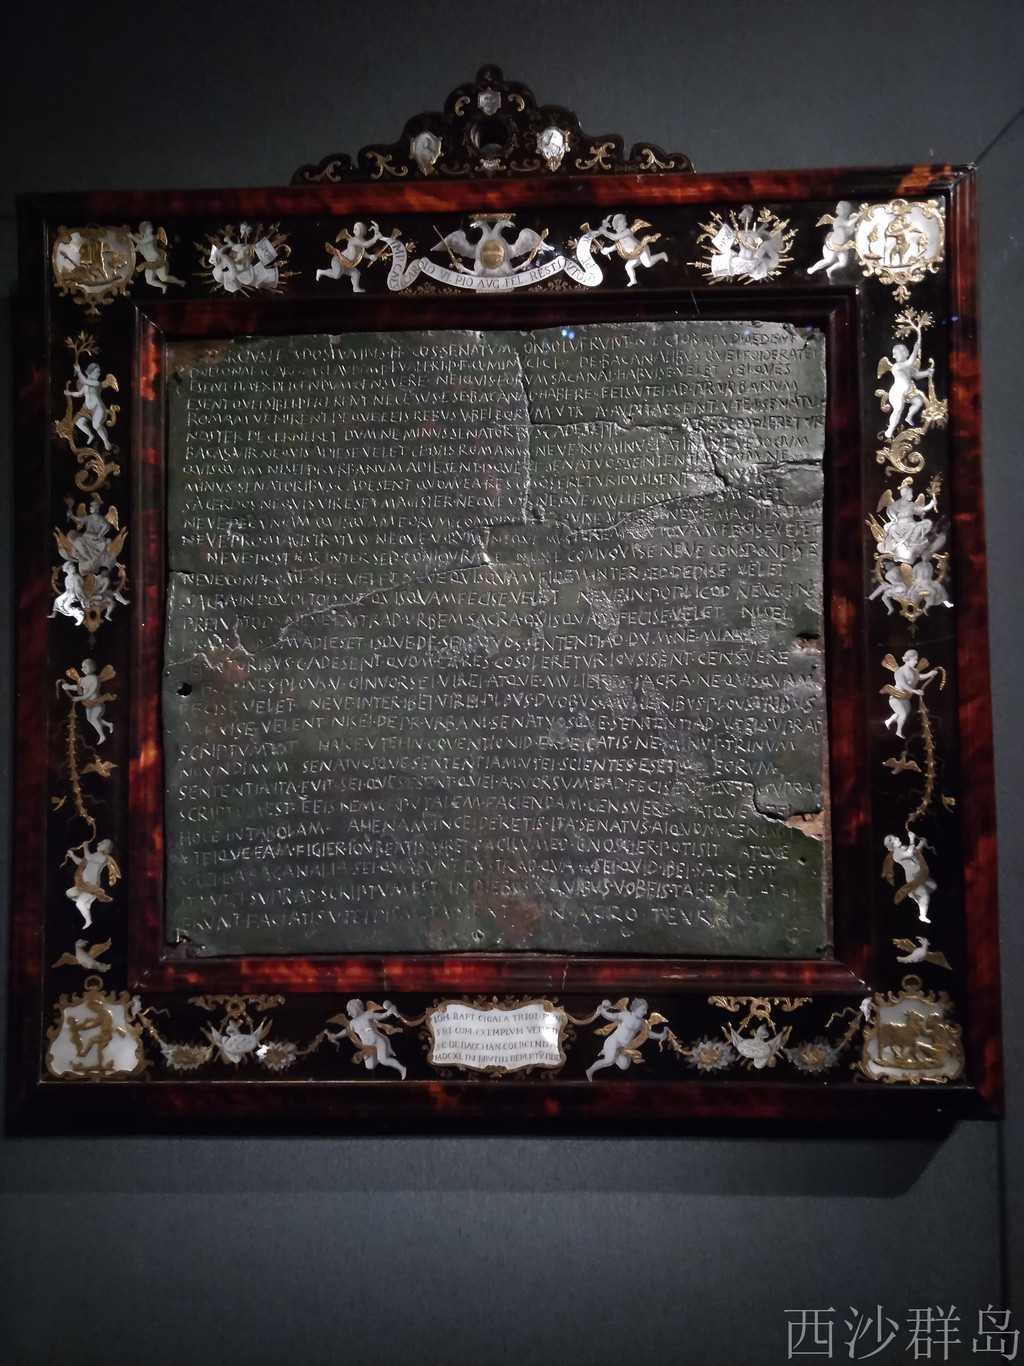 IMP CAROLO VI PIO AVG FEL RESTITVTORI
SENATVM CONSOLVERVNT N OCTOB APVD AEDEM
CLAVDI M F L VALERI P F DE BACANALIBVS QVEI FOIDERATEI
ESENT ITA EXDEICENDVM CENSVERE NEIQVIS EORVM SACANAL HABVISE VELET SEI QVES
ESENT QVEI SIBEI DEICERENT NECESVS ESE BACANAL HABERE EEIS VTEI AD PR VRBANVM
ROMAM VENIRENT DEQVE EEIS REBVS VBEI EORVM VTR A ESENT VTEI SENATVS
NOSTER DECERNERET DVM NE MINVS SENATORBVS C ADESENT COSOLERETVR
BACAS VIR NEQVIS ADIESE VELET CEIVIS ROMANVS NEVE NOMINVS LATINI NEVE SOCIVM
QVISQVAM NISEI PR VRBANVM ADIESENT SENATVOS SENTENTIAD NE
MINVS SENATORIBVS C ADESENT QVOM EA RES COSOLERETVR IOVSISENT
SACERDOS NEQVIS VIR ESET MAGISTER NEQVE VIR NEQVE MVLIER
NEVE PECVNIAM QVISQVAM EORVM NEVE MAGISTRATVM
NEVE PRO MAGISTRATVO NEQVE VIRVM FECISE VELET
NEVE POST HAC INTER SED CONIOVRA NEVE COMVOVISE NEVE CONSPONDISE
NEVE CONPROMESISE VELET NEVE QVISQVAM FIDEM INTER SED DEDISE VELET
SACRA IN OQVOLTOD NE QVISQVAM FECISE VELET NEVE IN POPLICOD NEVE IN
PREIVATOD NEVE EXSTRAD VRBEM SACRA QVISQVAM FECISE VELET NISEI
ADIESET ISQVE DE SENATVOS SENTENTIAD DVM NE MINVS
C ADESENT QVOM EA RES COSOLERETVR IOVSISENT CENSVERE
HOMINES PLOVS V OINVORSEI VIREI ATQVE MVLIERES SACRA NE QVISQVAM
FECISE VELET NEVE INTER IBEI VIREI PLOVS DVOBVS MVLIERIBVS PLOVS TRIBVS
VELENT NISEI DE PR VRBANI SENATVOSQVE SENTENTIAD VTEI SVPRAD
SCRIPTVM EST HAICE VTEI IN COVENTIONID EXDEICATIS NE MINVS TRINVM
NOVNDINVM SENATVOSQVE SENTENTIAM VTEI SCIENTES ESETIS EORVM
SENTENTIA ITA FVIT SEI QVES ESENT QVEI ARVORSVM EAD FECISENT QVAM SVPRAD
SCRIPTVM EST EEIS REM CAPVTALEM FACIENDAM CENSVERE ATQVE
HOCE IN TABOLAM AHENAM INCEIDERETIS ITA SENATVS AIQVOM CENSVIT
VTEIQVE EAM FIGIER IOVBEATIS VBEI FACILVMED GNOSCIER POTISIT ATQVE
BACANALIA SEI QVA SVNT EXSTRAD QVAM SEI QVID IBEI SACRI EST
VTEI SVPRAD SCRIPTVM EST IN DIEBVS X QVIBVS VOBEIS TABELAI DATAI
ERVNT FACIATIS VTEI IN AGRO TEVRANO
IOH BAPT CIGALA TRIOL
COM EXEMPLVM
S C DE BACCHAN COERCEND
MDCXL IN BRVTIIS REPERTVM
西沙群岛